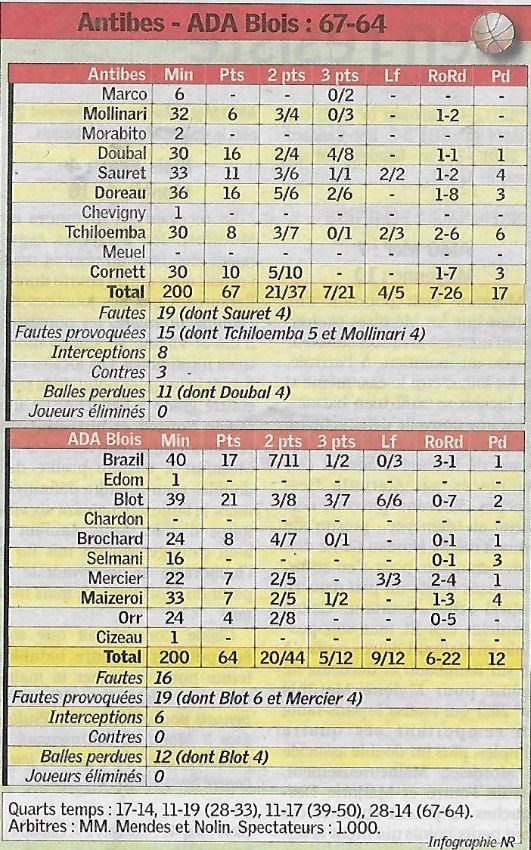 Antibes - ADA Blois : 67-64
Antibes Min Pts 2 pts 3 pts Lf RoRd Pd
Marco 6 - - 0/2 - - -
Mollinari 32 6 3/4 0/3 - 1-2 -
Morabito 2 - - - - - -
Doubal 30 16 2/4 4/8 - 1-1 1
Sauret 33 11 3/6 1/1 2/2 1-2 4
Doreau 36 16 5/6 2/6 - 1-8 3
Chevigny 1 - - - - - -
Tchiloemba 30 8 3/7 0/1 2/3 2-6 6
Meuel - - - - - - -
Cornett 30 10 5/10 - - 1-7 3
Total 200 67 21/37 7/21 4/5 7-26 17
Fautes 19 (dont Sauret 4)
Fautes provoquées 15 (dont Tchiloemba 5 et Mollinari 4)
Interceptions 8
Contres 3
Balles perdues 11 (dont Doubal 4)
Joueurs éliminés 0
ADA Blois Min Pts 2 pts 3 pts Lf RoRd Pd
Brazil 40 17 7/11 1/2 0/3 3-1 1
Edom 1 - - - - - -
Blot 39 21 3/8 3/7 6/6 0-7 2
Chardon - - - - - - -
Brochard 24 8 4/7 0/1 - 0-1 1
Selmani 16 - - - - 0-1 3
Mercier 22 7 2/5 - 3/3 2-4 1
Maizeroi 33 7 2/5 1/2 - 1-3 4
Orr 24 4 2/8 - - 0-5 -
Cizeau 1 - - - - - -
Total 200 64 20/44 5/12 9/12 6-22 12
Fautes 16
Fautes provoquées 19 (dont Blot 6 et Mercier 4)
Interceptions 6
Contres 0
Balles perdues 12 (dont Blot 4)
Joueurs éliminés 0
Quarts temps : 17-14, 11-19 (28-33), 11-17 (39-50), 28-14 (67-64).
Arbitres : MM. Mendes et Nolin. Spectateurs : 1.000.
Infographie NR